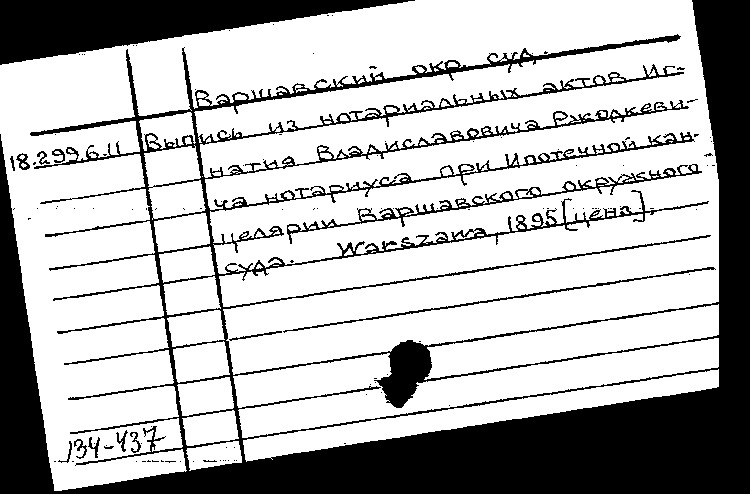 Варшавский окр. суд.
18.299.6.11 Выпись из нотариальных актов Иг-
натия Владиславовича Ржодкеви-
ча нотариуса при Ипотечной кан-
целярии Варшавского окружного
суда. Warszawa, 1895 [цена].
134-437